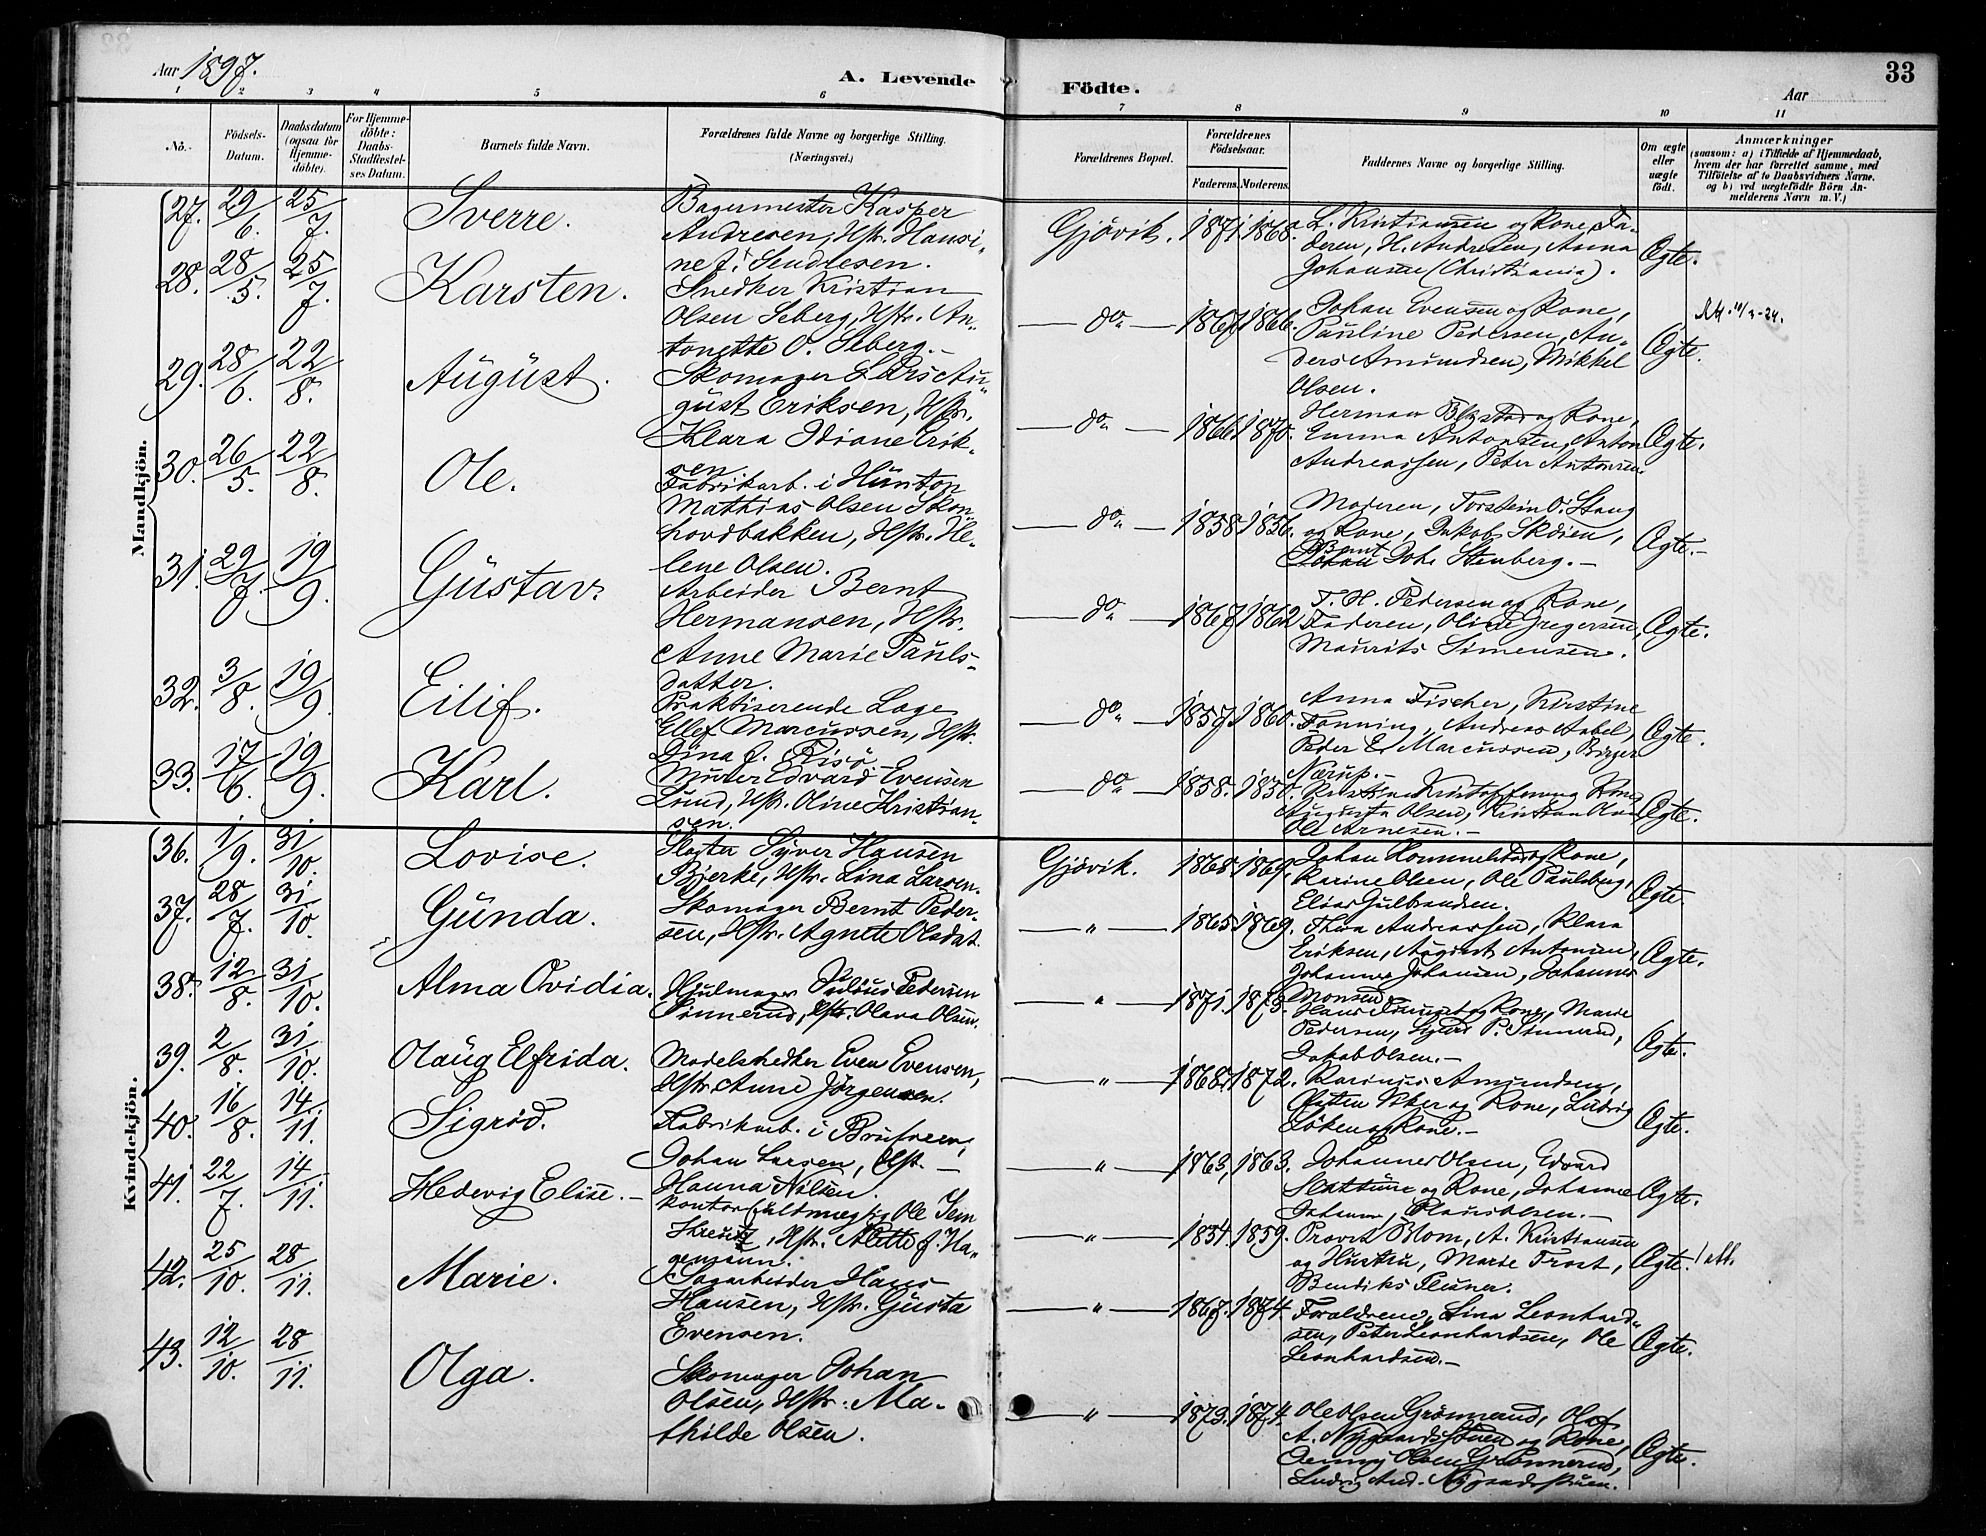 Aar 1897.
A. Levende
Födte.
33
Aar
1 2 3 4 5 6 7 8 9 10 11
No.
Födsels-
Datum.
Daabsdatum
(ogsaa for
Hjemme-
döbte).
For Hjemme-
döbte:
Daabs-
Stadfæstel-
ses Datum.
Barnets fulde Navn.
Forældrenes fulde Navne og borgerlige Stilling.
(Næringsvei.)
Forældrenes Bopæl.
Forældrenes
Födselsaar.
Faderens. Moderens.
Faddernes Navne og borgerlige Stilling.
Om ægte
eller
uægte
født.
Anmærkninger
(saasom: a) i Tilfælde af Hjemmedaab,
hvem der har forrettet samme, med
Tilföielse af to Daabsvidners Navne.
og b) ved uægtefödte Börn An-
melderens Navn m. V.)
Mandkjön.
27. 29/6. 25/7. Sverre.
Bagermester Kasper
Andresen, Hstr. Hansi-
ne f.
Gjövik. 1871. 1868.
L. Kristiansen og Kone, Fa-
deren, H. Andresen, Anna
Johansen (Christiania).
Ægte.
28. 28/5. 25/7. Karsten.
Snedker Kristian
Olsen Seberg, Hstr. An-
tonette O. Seberg.
do 1867. 1866.
Johan Evensen og Kone,
Pauline Pedersen, An-
ders Amundsen, Mikkel
Olsen.
Ægte.
29. 28/6. 22/8. August.
Skomager Lars Au-
gust Eriksen, Hstr.
Klara Idiane Erik-
sen.
do 1866. 1870.
Herman og Kone,
Emma Antonsen, Anton
Andreassen, Peter Antonsen.
Ægte.
30. 26/5. 22/8. Ole.
Fabrikarb. i Hunton
Mathias Olsen Skon-
hovdbakken, Hstr. He-
lene Olsen.
do 1858. 1856.
Moderen, Torstein O. Stang
og Kone, Jakob Sköien,
Bernt
Johan Joh. Stenberg. -
Ægte. -
31. 29/7. 19/9. Gustav.
Arbeider Bernt
Hermansen, Hstr.
Anne Marie Pauls-
datter.
do 1867. 1862.
T. H. Pedersen og Kone,
Faderen, Oline Gregersen,
Maurits Simensen.
Ægte.
32. 3/8. 19/9. Eilif.
Praktiserende Læge
Ellef Marcussen, Hstr.
Dina f.
do 1857. 1860.
Anna Fischer, Kirstine
Fanning, Andreas Aabel,
Peder E. Marcussen, Birger
Nærup. -
Ægte.
33. 17/6. 19/9. Karl.
Murer Edvard Evensen
Lund, Hstr. Oline Kristian-
sen.
do 1858. 1850.
Augusta Olsen, Kristian Olsen
Ole Arnesen. -
Ægte.
Kvindekjön.
36. 1/9. 31/10. Lovise.
Slagter Syver Hansen
Bjerke, Hstr. Lina Larsen.
Gjövik. 1868. 1869.
Johan og Kone,
Karine Olsen, Ole Paulsberg,
Elias Gulbrandsen.
Ægte.
37. 28/7. 31/10. Gunda.
Skomager Bernt Peder-
sen, Hstr. Agnete Olsdat.
" 1865. 1869.
Thea Andreassen, Klara
Eriksen, August Antonsen,
Johannes Johansen, Johannes
Monsen.
Ægte.
38. 12/8. 31/10. Alma Ovidia.
Hjulmager Julius Pedersen
Hstr. Olava Olsen.
" 1871. 1873.
Hans og Kone, Marie
Pedersen,
Jakob Olsen. -
Ægte.
39. 2/8. 31/10. Olaug Elfrida.
Modelsnedker Even Evensen,
Hstr. Anne Jörgensen.
" 1868. 1872.
Karinus Amundsen,
og Kone, Ludvig
og Kone. -
Ægte.
40. 16/8. 14/11. Sigrid.
Fabrikarb. i Brufoss,
Johan Larsen, Hstr. -
Hanna Nilsen.
" 1863. 1863.
Johannes Olsen, Edvard
og Kone, Johanne
Johansen, Olsen. -
Ægte.
41. 22/7. 14/11. Hedevig Elise. -
Kontorfuldmægtig Ole Jem
Hstr. Alette f. Ha-
gemann.
" 1854. 1859.
Provst Blom, A. Kristiansen
og Hustru, Marie Trost,
Bendiks Plesner.
Ægte.
42. 25/10. 28/11. Marie.
Sagarbeider Hans
Hansen, Hstr. Gusta
Evensen.
" 1867. 1874.
Forældrene, Lina Leonhard-
sen, Peter Leonhardsen, Ole
Leonhardsen. -
Ægte.
43. 12/10. 28/11. Olga.
Skomager Johan
Olsen, Hstr. Ma-
thilde Olsen.
" 1873. 1874.
Ole Olsen Grönnerud, Olaf
A. Nygaardsstuen og Kone,
Jenny Olsen Grönnerud,
Ludvig And. Nygaardsstuen.
Ægte.